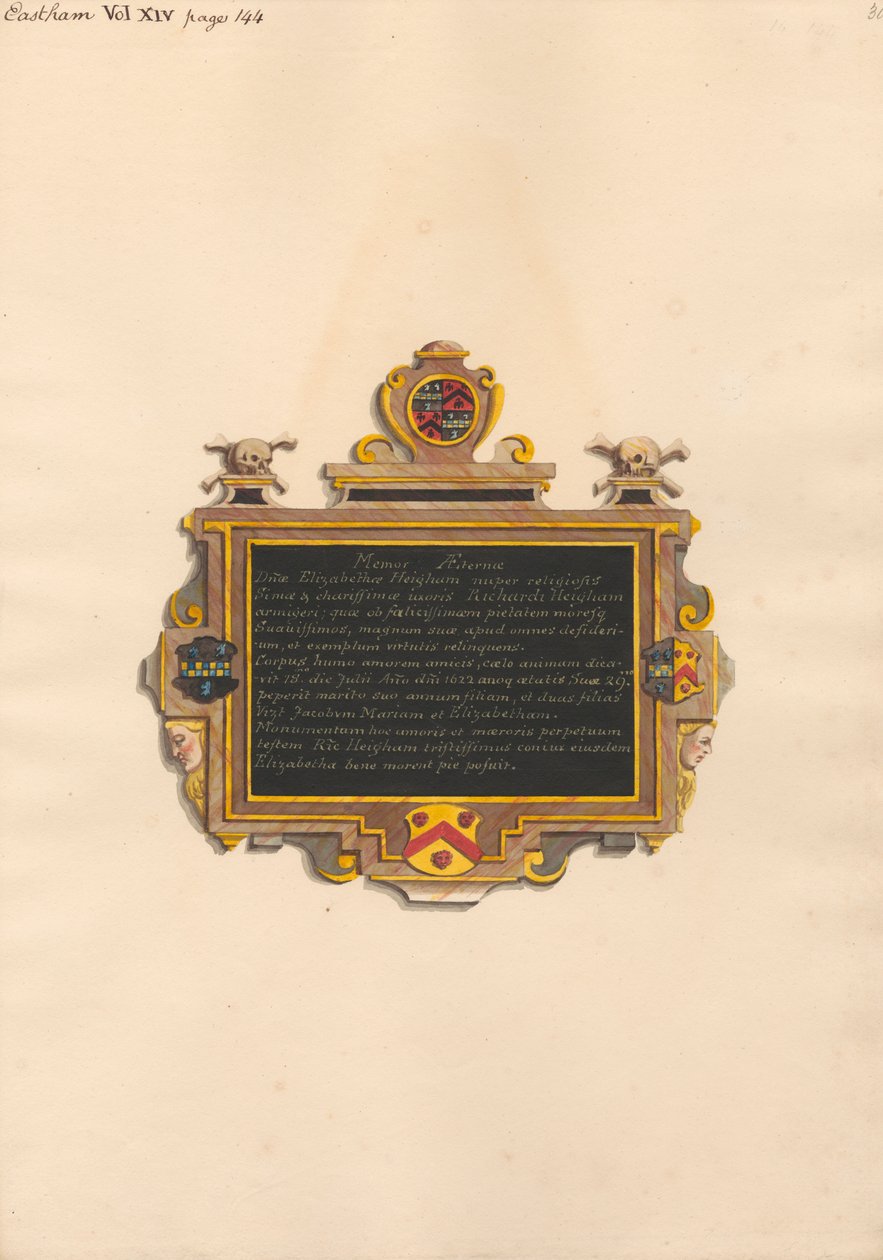 Eastham Vol XIV page 144
30
Memor Æternæ
Dnæ Elizabethæ Heigham nuper religiosis
simæ & charissimæ uxoris Richardi Heigham
armigeri; quæ ob fælicissimæm pietatem moresq
Suauissimos, magnum suæ apud omnes desideri-
um, et exemplum virtutis relinquens.
Corpus humo amorem amicis, cælo animam dica-
vit 18.no die Julii Año dñi 1622 anoq ætatis Suæ 29.no
peperit marito suo annum filiam, et duas filias
Vizt Jacobvm Mariam et Elizabetham.
Monumentam hoc amoris et mæroris perpetuum
testem Ric̃ Heigham tristissimus coniux eiusdem
Elizabetha bene morent pie posuit.